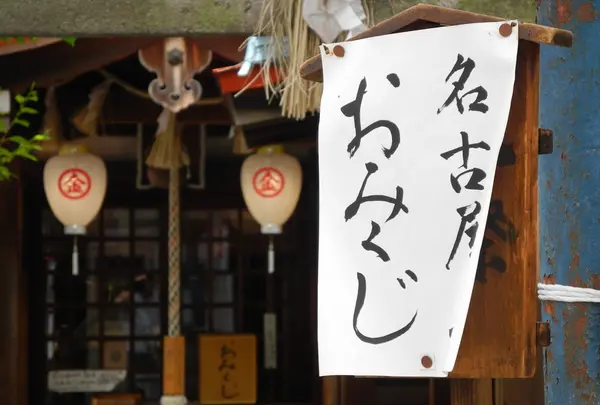 名古屋
おみくじ
金
金
おみくじ